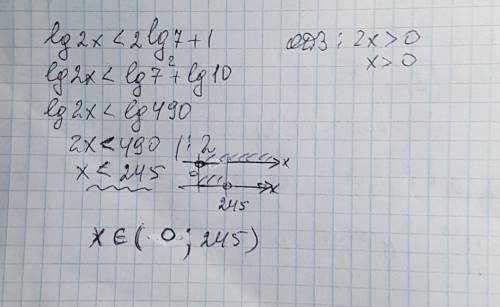 lg2x < 2lg7+1
ОДЗ: 2x>0
x>0
lg2x < lg7²+lg10
lg2x < lg490
2x < 490 |:2
x < 245
0 x
245 x
x ∈ (0; 245)